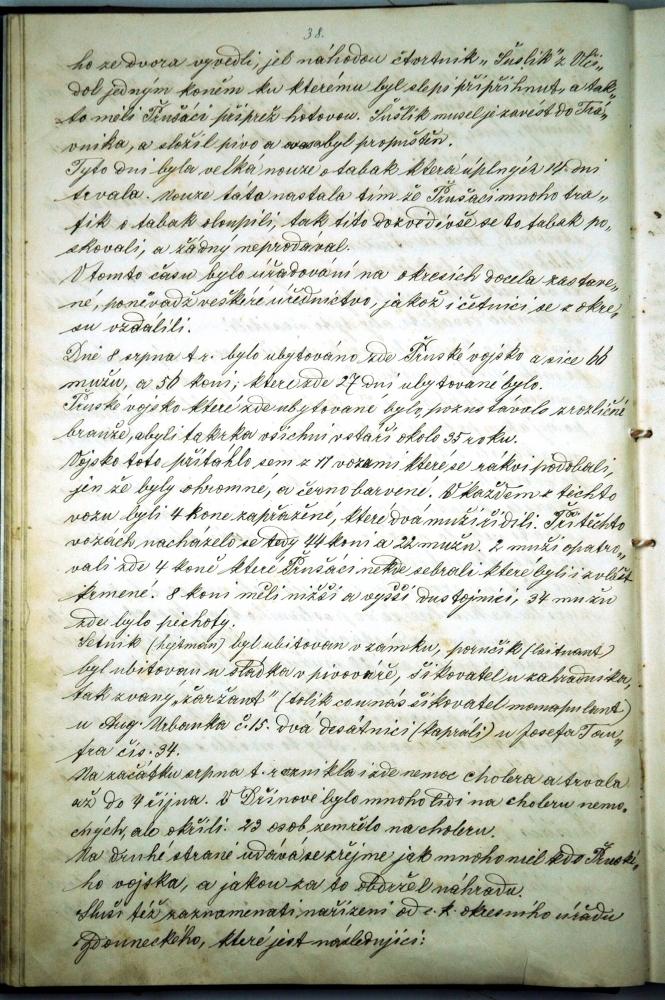 38.
ho ze dvora vyvedli, jel náhodou čtvrtník „Šuslík" z Olši„
dol jedným koněm ku kterému byl slepí přípříhnut„ a tak„
to měli Prušáci přípřež hotovou. Šuslík musel je zavést do Trá„
vníka, a složil pivo a byl propuštěn.
Tyto dni byla velká nouze o tabak která úplných 14 dní
trvala. Nouze táto nastala tím že Prušáci mnoho tra„
fik o tabak oloupili, tak tito dozvěděvše se to tabak po„
skovali, a žádný neprodával.
V tomto času bylo úřadování na okresích docela zastave„
né, poněvadž veškeré úřednictvo, jakož i četníci se z okre„
su vzdálili.
Dne 8 srpna t. r. bylo ubytováno zde Pruské vojsko a sice 66
mužu, a 56 koní; které zde 27 dní ubytované bylo.
Pruské vojsko které zde ubytované bylo, pozustávalo z rozličné
branže, a byli takřka všichni v stáří okolo 35 roku.
Vojsko toto přitáhlo sem z 11 vozami které se rákvi podobali,
jen že byly ohromné, a černo barvené. V každém z těchto
vozu byli 4 kone zapřažené, které dvá muži řídili. Při těchto
vozách nacházelo se tedy 44 koní a 22 mužu. 2 muži opatro„
vali zde 4 koně které Prušáci nekde sebrali které byli i zvlášť
krmené. 8 koni měli nižší a vyšší dustojníci, 34 mužu
zde bylo pěchoty.
Setník (hejtman) byl ubitován v zámku, poručík (leitnant)
byl ubitovan u sládka v pivováře, šikovatel u zahradníka,
tak zvaný „žaržant" (tolik co u nás šikovatel manipulant)
u Aug. Urbanka č. 15. dvá desátníci (kapráli) u Josefa Tou„
fra čís. 34.
Na začátku srpna t. r. vznikla i zde nemoc cholera a trvala
až do 4 října. V Dřínově bylo mnoho lidí na choleru nemo„
cných, ale okřili. 23 osob zemřelo na choleru.
Na druhé straně udává se zřejme jak mnoho měl kdo Pruské„
ho vojska, a jakou za to obdržel náhradu.
Sluší též zaznamenati nařízení od c. k. okresního úřadu
Zdouneckého, které jest následující: